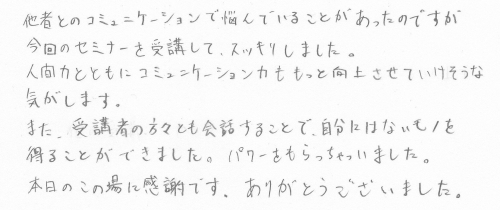 他者とのコミュニケーションで悩んでいることがあったのですが
今回のセミナーを受講して、スッキリしました。
人間力とともにコミュニケーション力ももっと向上させていけそうな
気がします。
また、受講者の方々とも会話することで、自分にはないモノを
得ることができました。パワーをもらっちゃいました。
本日のこの場に感謝です。ありがとうございました。